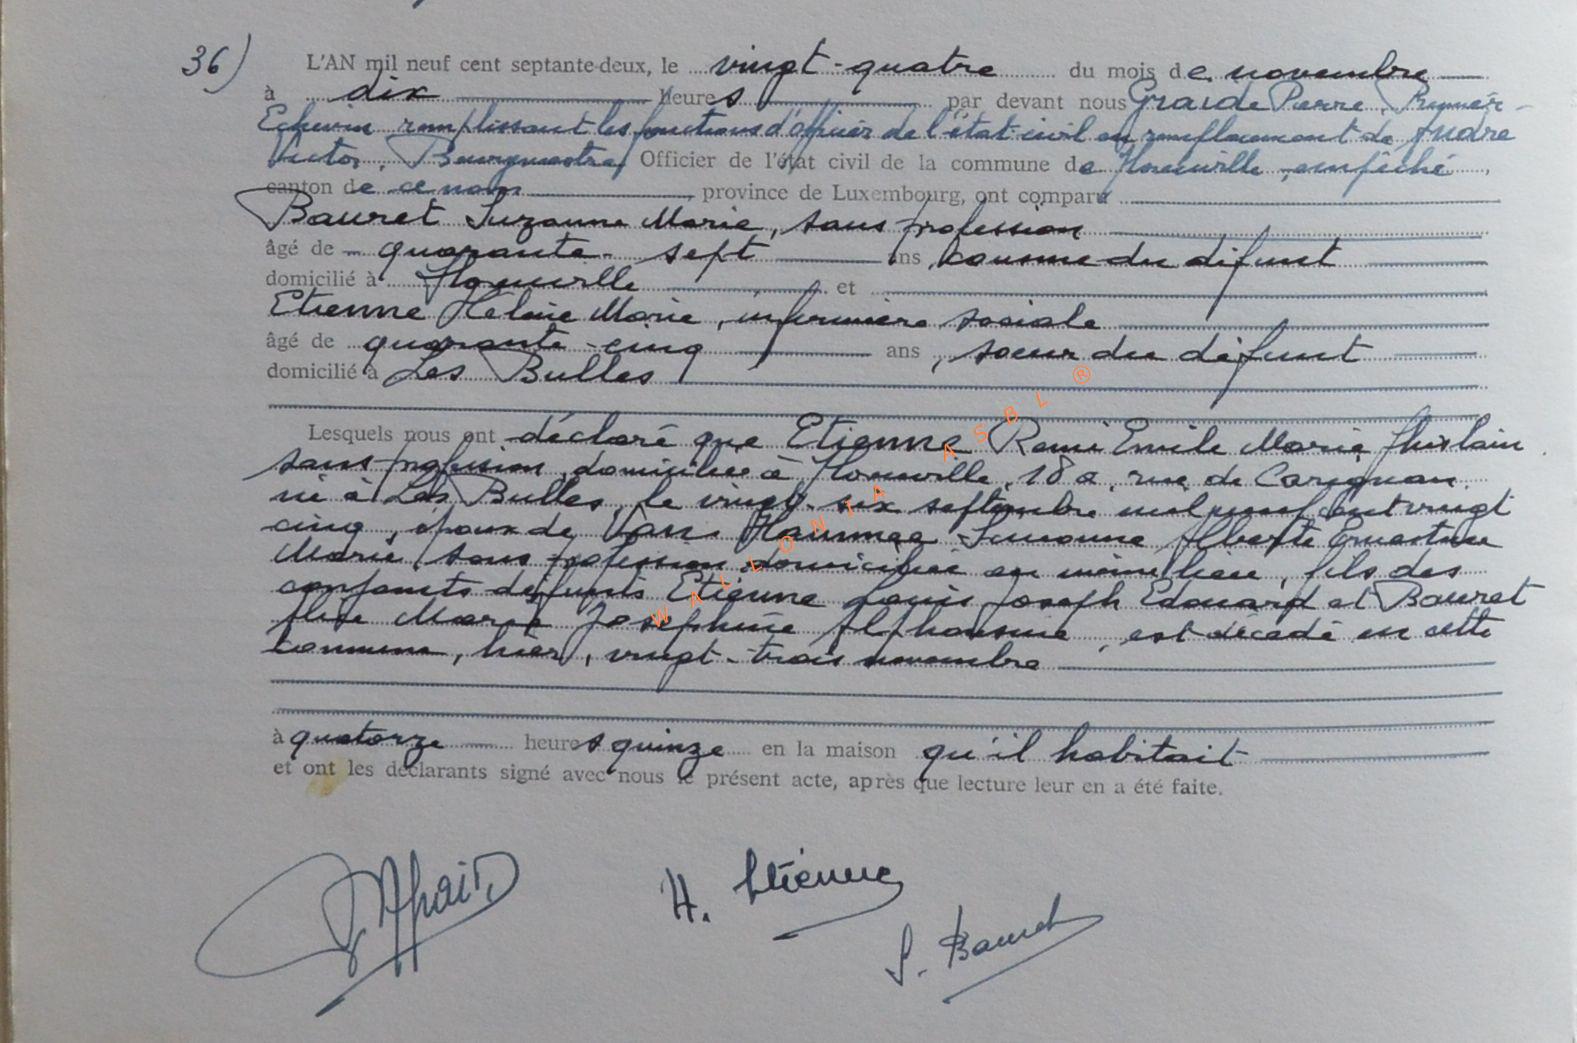 36) L'AN mil neuf cent septante-deux, le vingt-quatre du mois de novembre
à dix heures par devant nous Pierre, Premier
Echevin remplissant les fonctions d'officier de l'état-civil en remplacement de André
Victor, Bourgmestre, Officier de l'état civil de la commune de empêché,
canton de ce nom, province de Luxembourg, ont comparu
Bauret Suzanne Marie, sans profession
âgé de quarante-sept ans, cousine du défunt
domicilié à et
Etienne Hélène Marie, infirmière sociale
âgé de quarante-cinq ans, soeur du défunt
domicilié à Les Bulles
Lesquels nous ont déclaré que Etienne Remi Emile Marie Ghislain
sans profession, domicilié à 18 a, rue de Carignan
né à Les Bulles, le vingt-six septembre mil neuf cent vingt
cinq, époux de Van Alberte Ernestine
Marie, sans profession domiciliée au même lieu, fils des
conjoints défunts Etienne Louis Joseph Edouard et Bauret
Marie Joséphine Alphonsine, est décédé en cette
commune, hier, vingt-trois novembre
à quatorze heures quinze en la maison qu'il habitait
et ont les déclarants signé avec nous le présent acte, après que lecture leur en a été faite.
H. Etienne
S. Bauret
WALLONIA ASBL ®